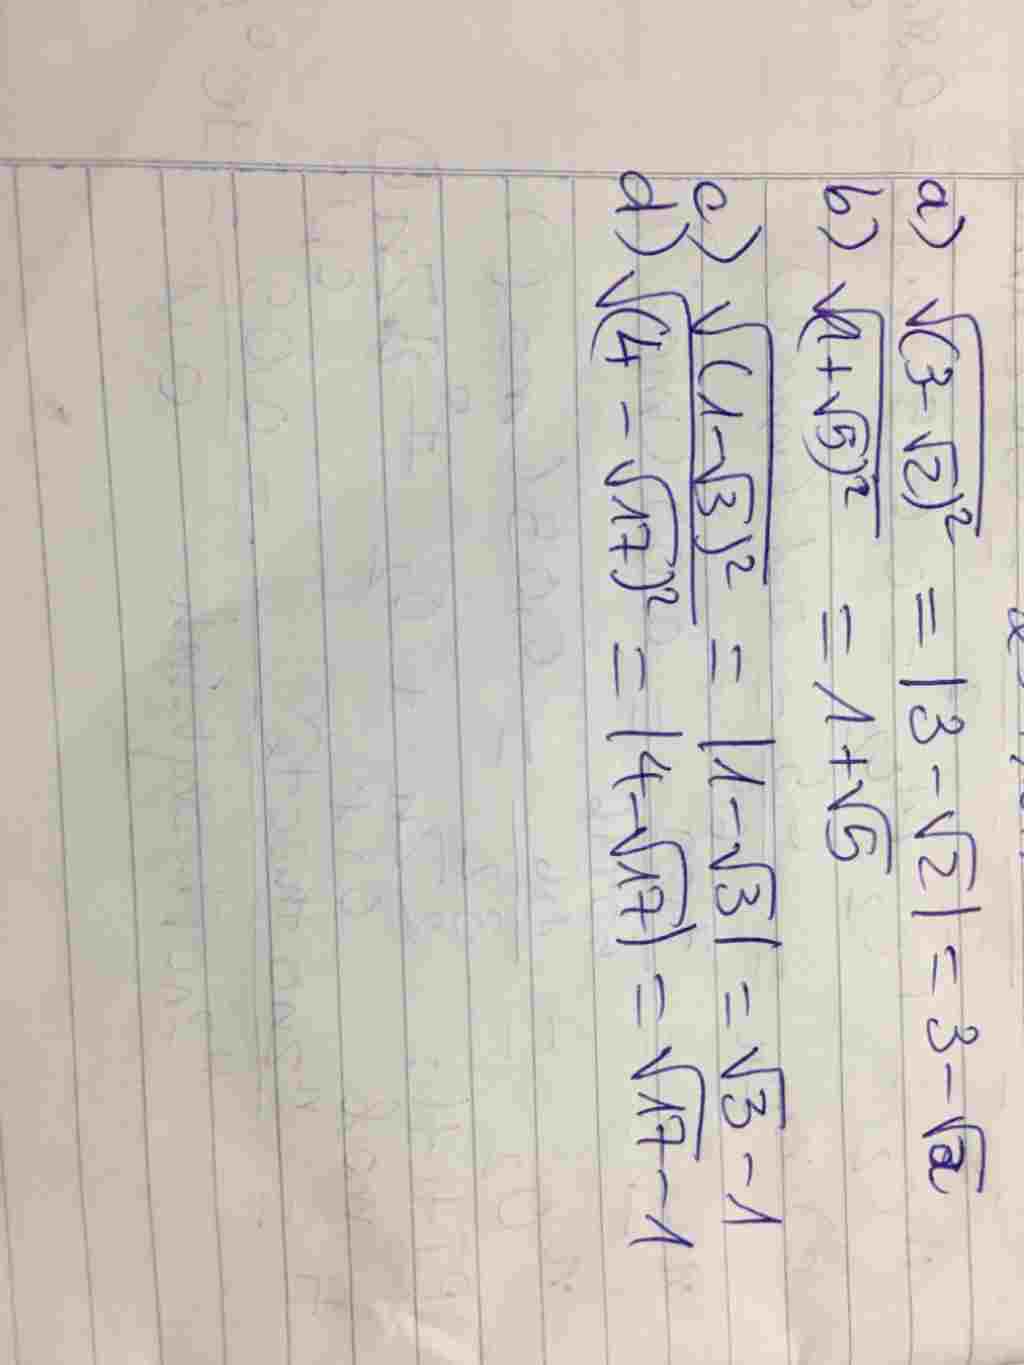 a) √(3-√2)² = |3-√2| = 3-√2
b) √(1+√5)² = 1+√5
c) √(1-√3)² = |1-√3| = √3-1
d) √(4-√17)² = |4-√17| = √17-1